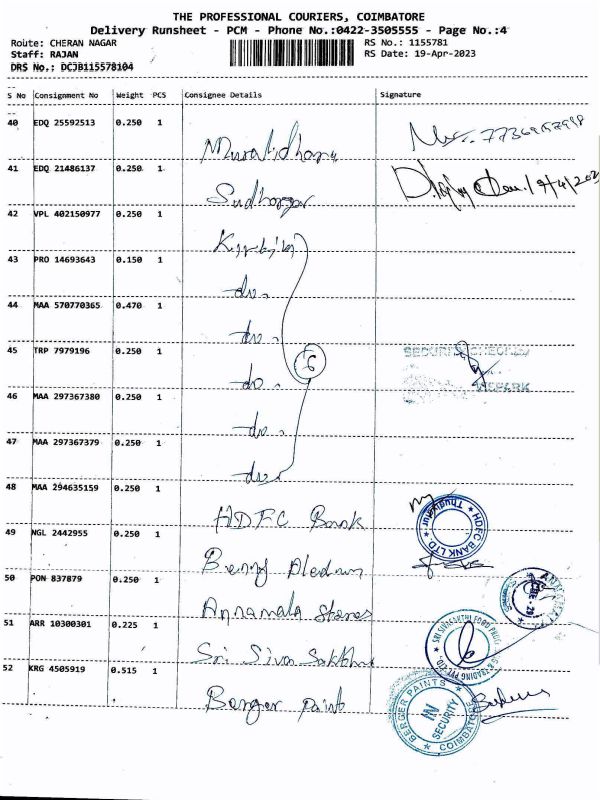 THE PROFESSIONAL COURIERS, COIMBATORE
Delivery Runsheet - PCM - Phone No.:0422-3505555 - Page No.:4
Route: CHERAN NAGAR RS No.: 1155781
Staff: RAJAN RS Date: 19-Apr-2023
DRS No.: DCJB115578104
S No Consignment No Weight PCS Consignee Details Signature
40 EDQ 25592513 0.250 1
41 EDQ 21486137 0.250 1
Sudhagar
42 VPL 402150977 0.250 1
43 PRO 14693643 0.150 1
do.
44 MAA 570770365 0.470 1
do.
45 TRP 7979196 0.250 1
6
do.
46 MAA 297367380 0.250 1
do.
47 MAA 297367379 0.250 1
do
48 MAA 294635159 0.250 1
HDFC Bank
HDFC BANK LTD.
49 NGL 2442955 0.250 1
50 PON 837879 0.250 1
Annamala Stores
51 ARR 10300301 0.225 1
Sri Siva Sakthi
52 KRG 4505919 0.515 1
Berger Paint
BERGER PAINTS
IN
SECURITY
COIMBATORE